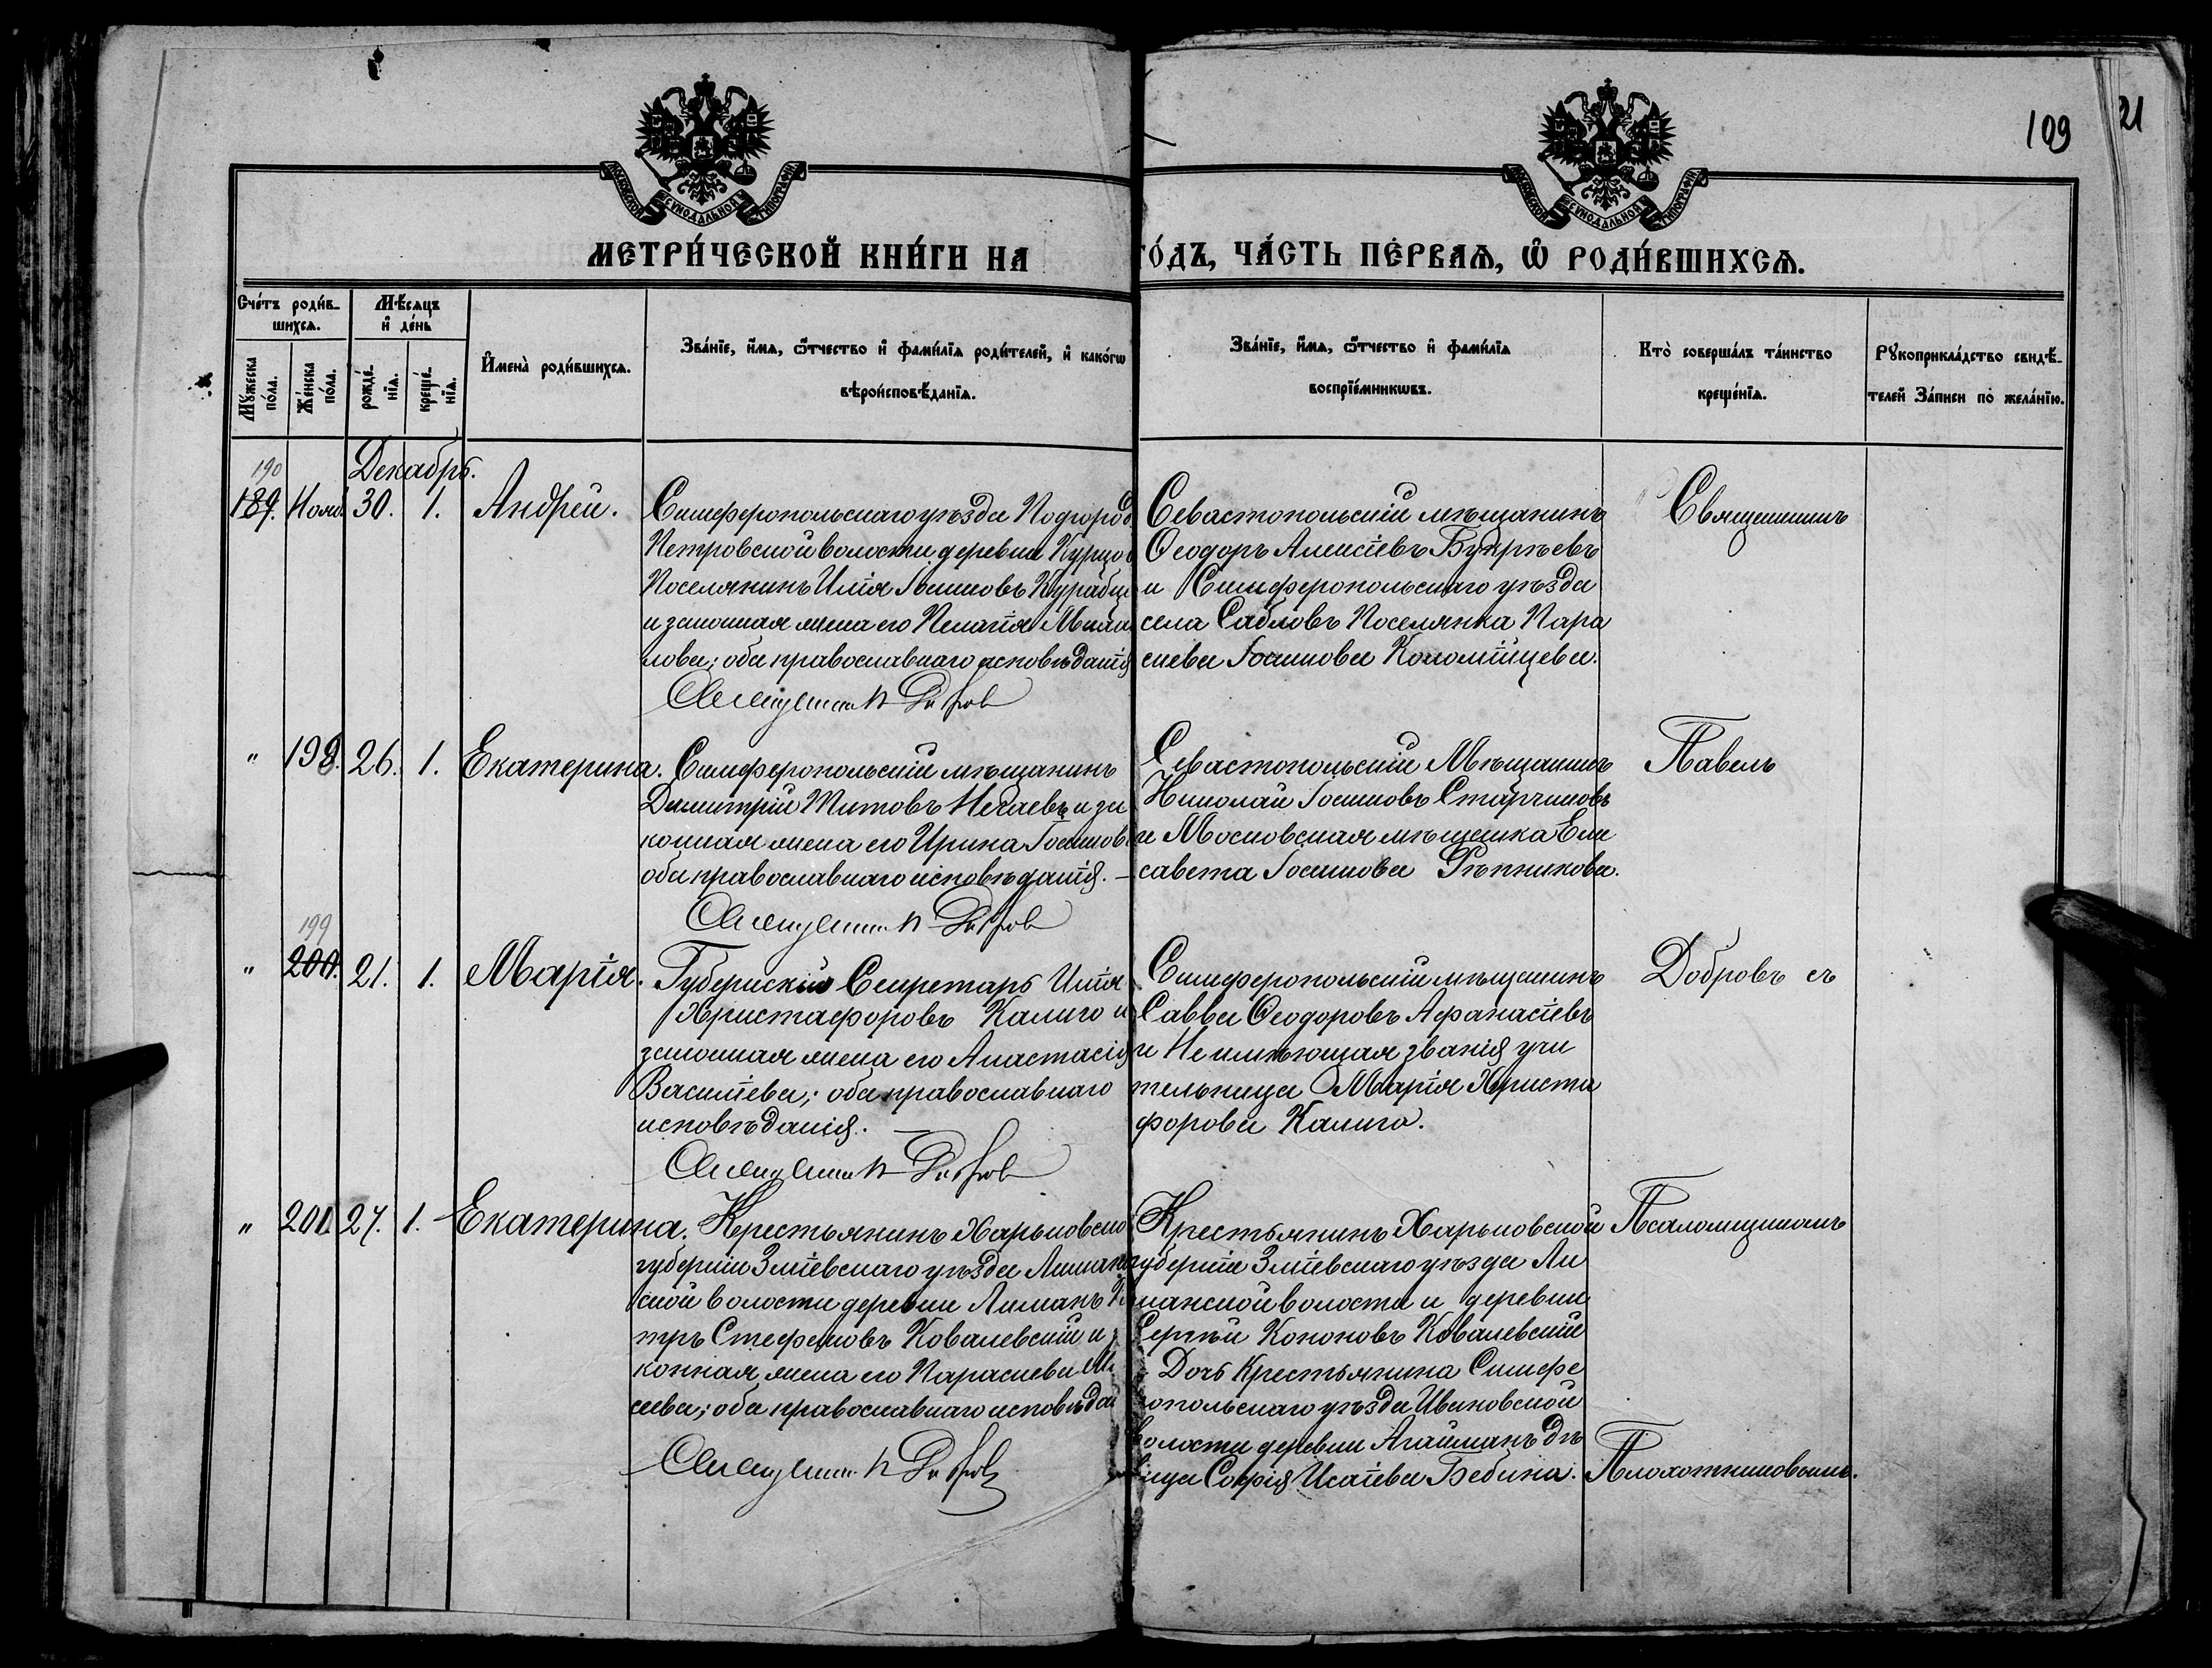 109
21
МОСКОВСКОЙ СѴНОДАЛЬНОЙ ТИПОГРАФІИ
МОСКОВСКОЙ СѴНОДАЛЬНОЙ ТИПОГРАФІИ
МЕТРИ́ЧЕСКОЙ КНИ́ГИ НА ГО́ДЪ, ЧА́СТЬ ПЕ́РВАЯ, Ѡ РОДИ́ВШИХСЯ.
Сче́тъ роди́в-
шихся.
Му́жеска
по́ла.
Же́нска
по́ла.
Мѣ́сяцъ
и де́нь
рожде́-
нія.
креще́-
нія.
Имена̀ роди́вшихся.
Зва́ніе, и́мя, ѻ́тчество и фами́лія роди́телей, и како́гѡ
вѣроисповѣ́данія.
Зва́ніе, и́мя, ѻ́тчество и фами́лія
воспріе́мникѡвъ.
Кто̀ соверша́лъ та́инство
креще́нія.
Рꙋкоприкла́дство свидѣ́-
телей за́писи по жела́нію.
Декабрь.
190
189. Нояб. 30. 1. Андрей.
Симферопольскаго уѣзда Подгород
Петровской волости деревни Курцов
Поселянинъ Илія Іосифовъ
и законная жена его Пелагія
лова; оба православнаго исповѣданія
Севастопольскій мѣщанинъ
Ѳеодоръ Алексіевъ
и Симферопольскаго уѣзда
села Сабловъ Поселянка Пара
скева Іосифова Коломійцева.
Священникъ
Священникъ П. Добров
" 198. 26. 1. Екатерина.
Симферопольскій мѣщанинъ
Димитрій Титовъ Нечаевъ и за
конная жена его Ирина Іосифов
оба православнаго исповѣданія. –
Севастопольскій Мѣщанинъ
Николай Іосифовъ Старчиковъ
и Московская мѣщанка Ели
савета Іосифова Рѣпникова.
Павелъ
Священникъ П. Добров
199
" 200. 21. 1. Марія.
Губернскій Секретарь Илія
Христофоровъ Калиго и
законная жена его Анастасія
Василіева; оба православнаго
исповѣданія. –
Симферопольскій мѣщанинъ
Савва Ѳеодоровъ Афанасіевъ
и Неимѣющая званія учи
тельница Марія Христо
форова Калиго.
Добровъ съ
Священникъ П. Добров
" 201. 27. 1. Екатерина.
Крестьянинъ Харьковско
губерніи Зміевскаго уѣзда Лиман
ской волости деревни Лиманъ
тръ Стефановъ Ковалевскій и
конная жена его Параскева
сеева; оба православнаго исповѣдан
Крестьянинъ Харьковской
губерніи Зміевскаго уѣзда Ли
манской волости и деревни
Сергѣй Кононовъ Ковалевскій
Дочь Крестьянина Симфе
ропольскаго уѣзда Ивановской
волости деревни Агайманъ дѣ
вица Софія Исаіева Бебина.
Псаломщикомъ
Плохотниковымъ.
Священникъ П. Добров